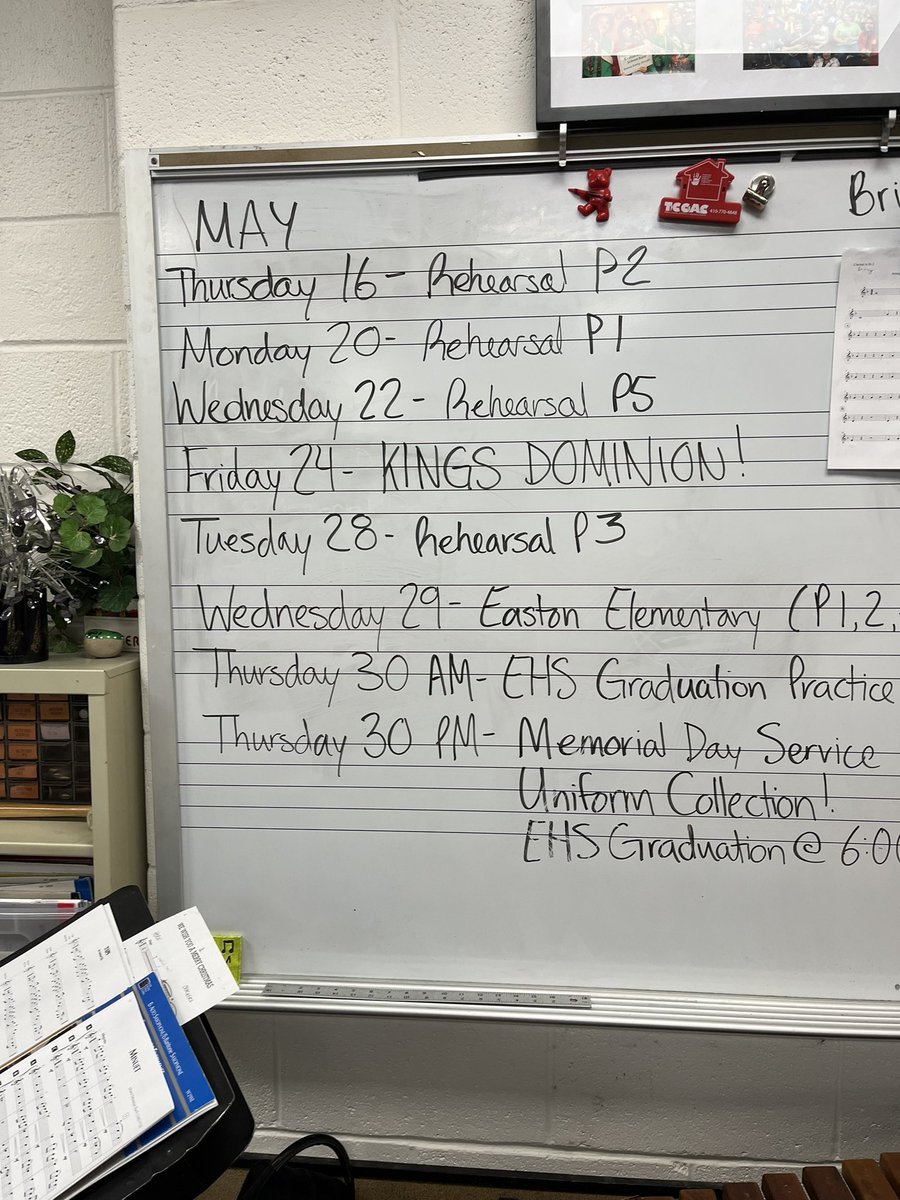 MAY
Thursday 16- Rehearsal P2
Monday 20- Rehearsal P1
Wednesday 22- Rehearsal P5
Friday 24- KINGS DOMINION!
Tuesday 28- Rehearsal P3
Wednesday 29- Easton Elementary (P1,2,
Thursday 30 AM- EHS Graduation Practice
Thursday 30 PM- Memorial Day Service
Uniform Collection!
EHS Graduation @ 6:00
Bri
TCGAC
410-770-4848
WE WISH YOU A MERRY CHRISTMAS
MINUET